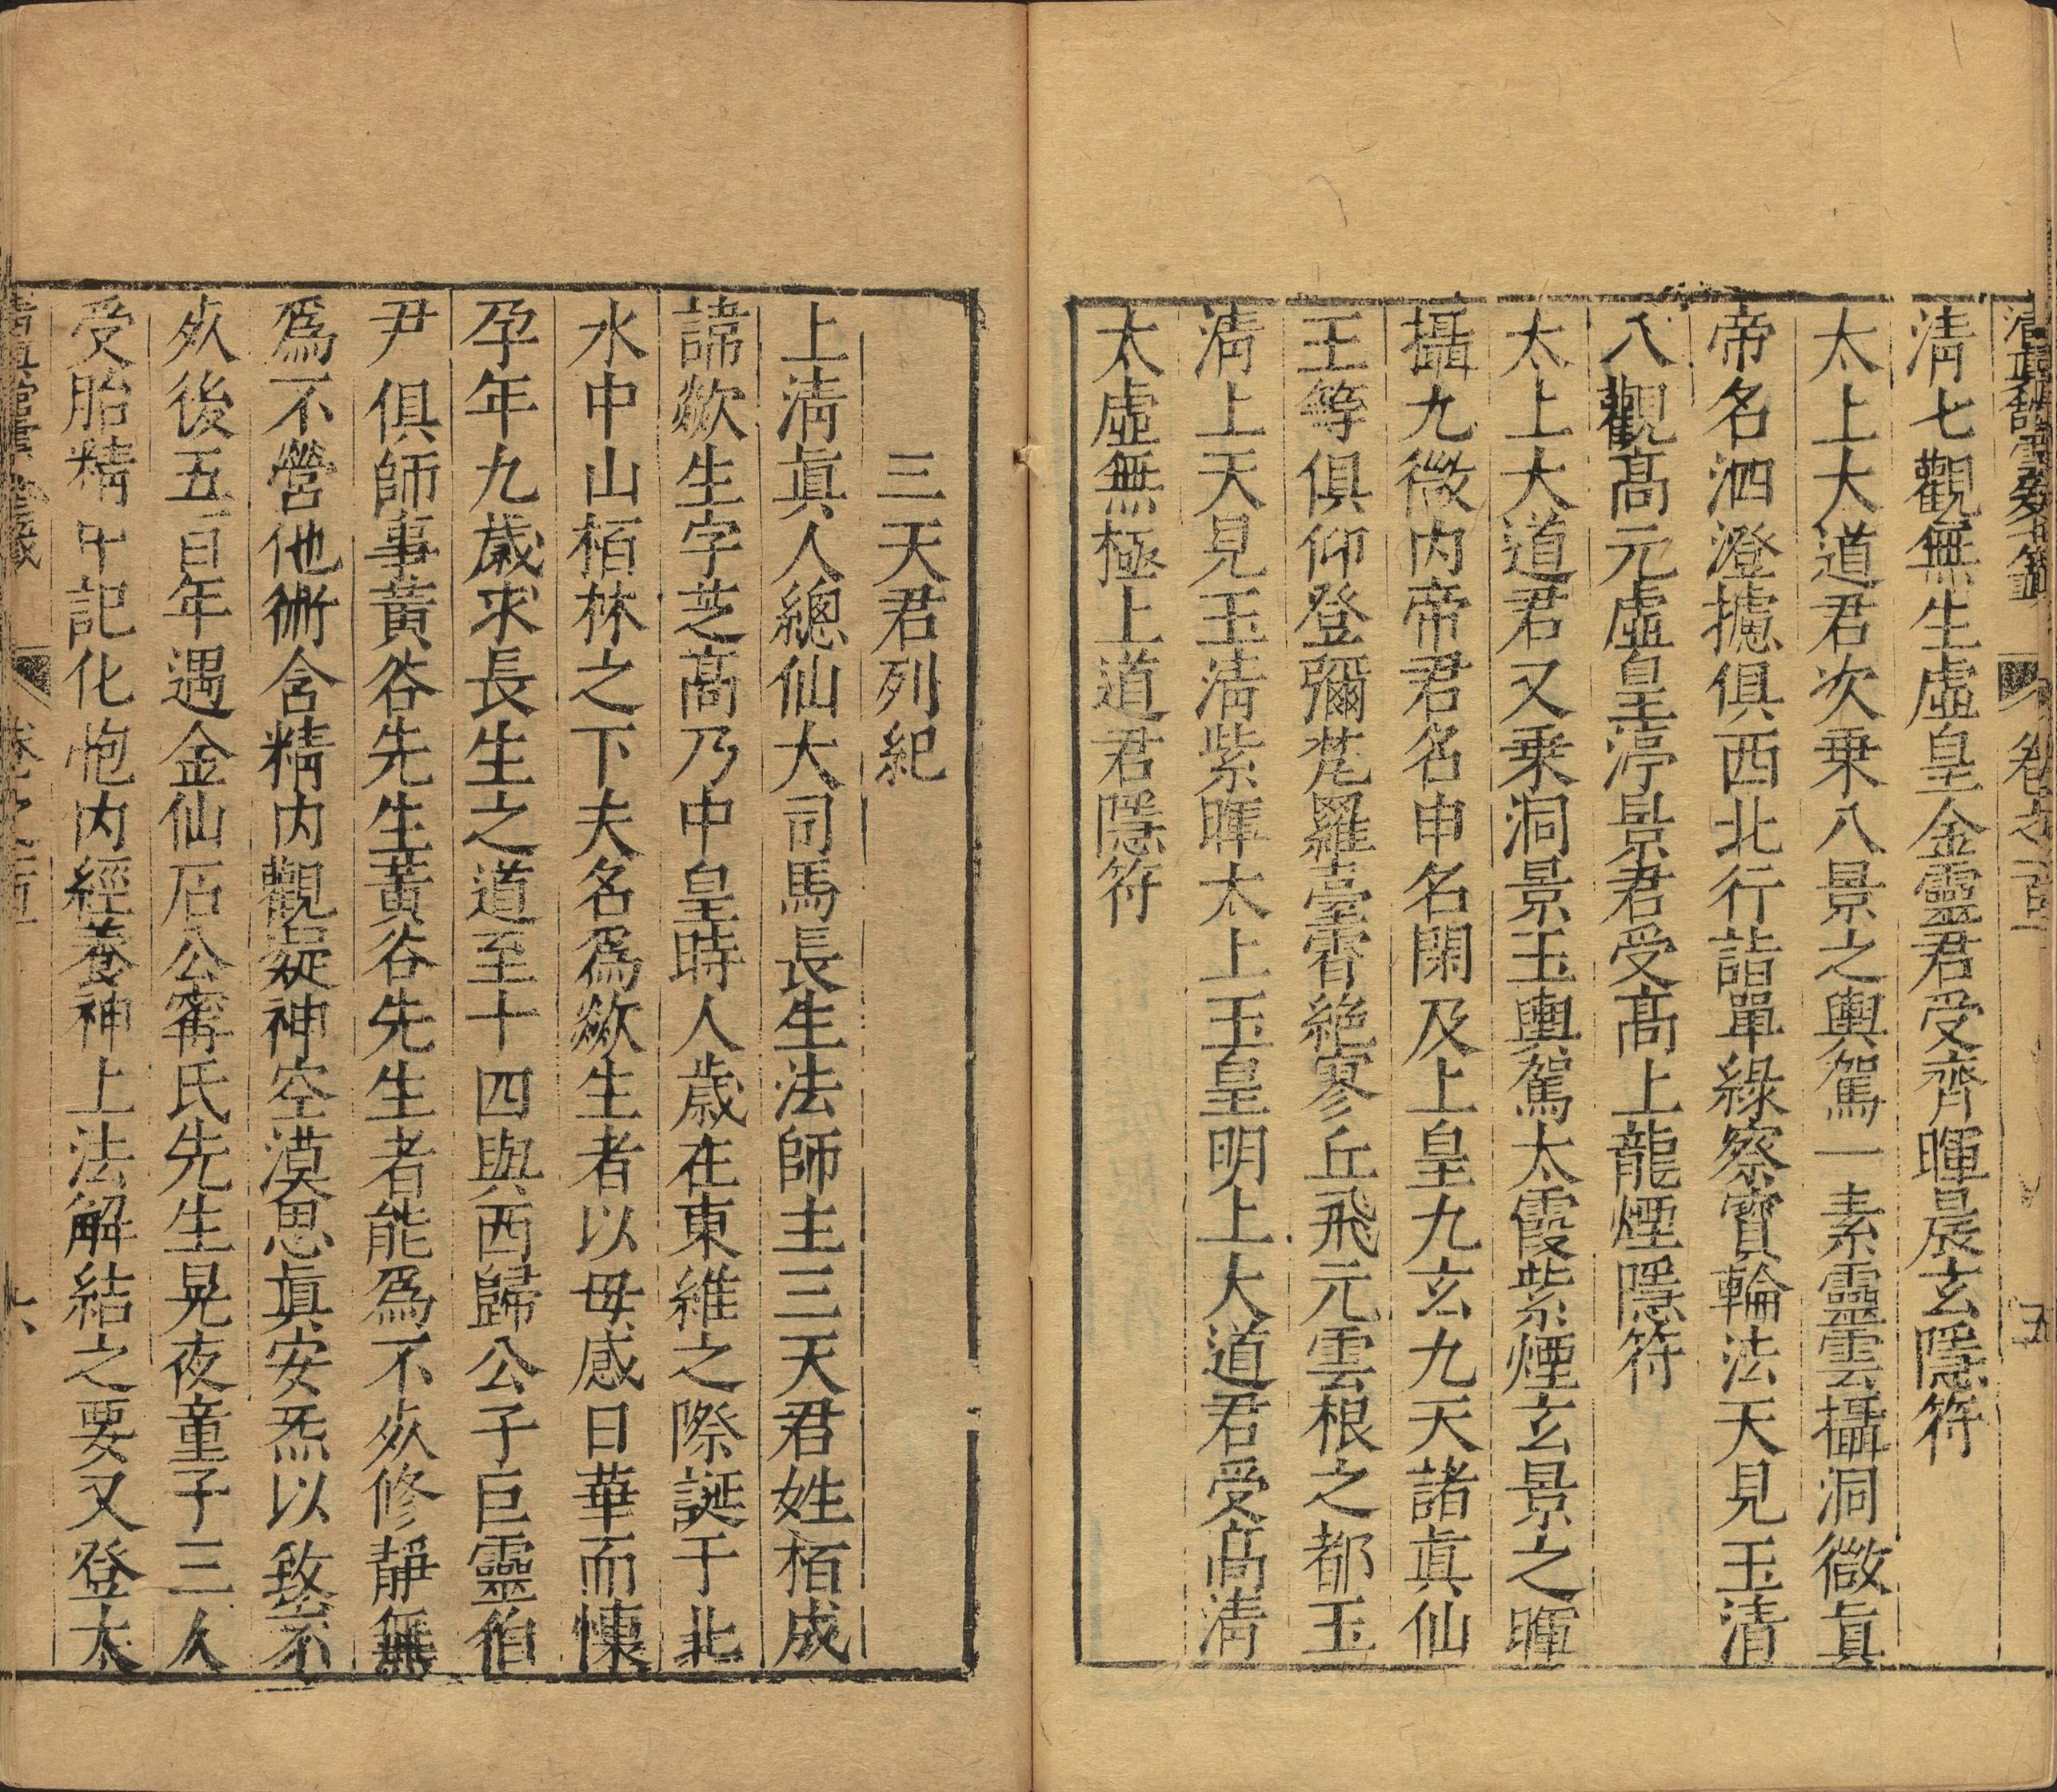 卷之一百一
五
清七觀無生虛皇金靈君受齊暉晨玄隱符
太上大道君次乗八景之輿駕一素靈雲攝洞微眞
帝名泗澄攄俱西北行詣單綠察寶輪法天見玉清
八觀髙元虛皇渟景君受髙上龍煙隱符
太上大道君又乗洞景玉輿駕太霞紫煙玄景之暉
攝九微内帝君名申名閑及上皇九玄九天諸眞仙
王等俱仰登彌梵羅臺霄絶寥丘飛元雲根之都玉
淸上天見玉淸紫暉太上玉皇明上大道君受髙淸
太虛無極上道君隱符
三天君列紀
上淸眞人總仙大司馬長生法師主三天君姓栢成
諱欻生字芝髙乃中皇時人歲在東維之際誕于北
水中山栢林之下夫名爲欻生者以母感日華而懷
孕年九歲求長生之道至十四與西歸公子巨靈伯
尹俱師事黃谷先生黃谷先生者能爲不㱠修靜無
爲不營他術含精内觀凝神空漠思眞安炁以致不
㱠後五百年遇金仙石公甯氏先生晃夜童子三人
受胎精中記化胞内經養神上法解結之要又登太
六